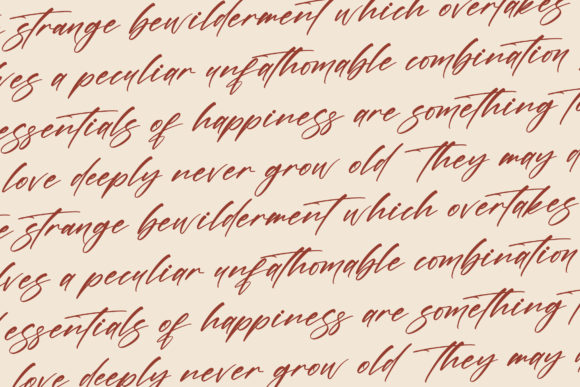 strange bewilderment which overtakes
ves a peculiar unfathomable combination
essentials of happiness are something to
love deeply never grow old They may d
e strange bewilderment which overtakes
lves a peculiar unfathomable combination
essentials of happiness are something t
love deeply never grow old They may